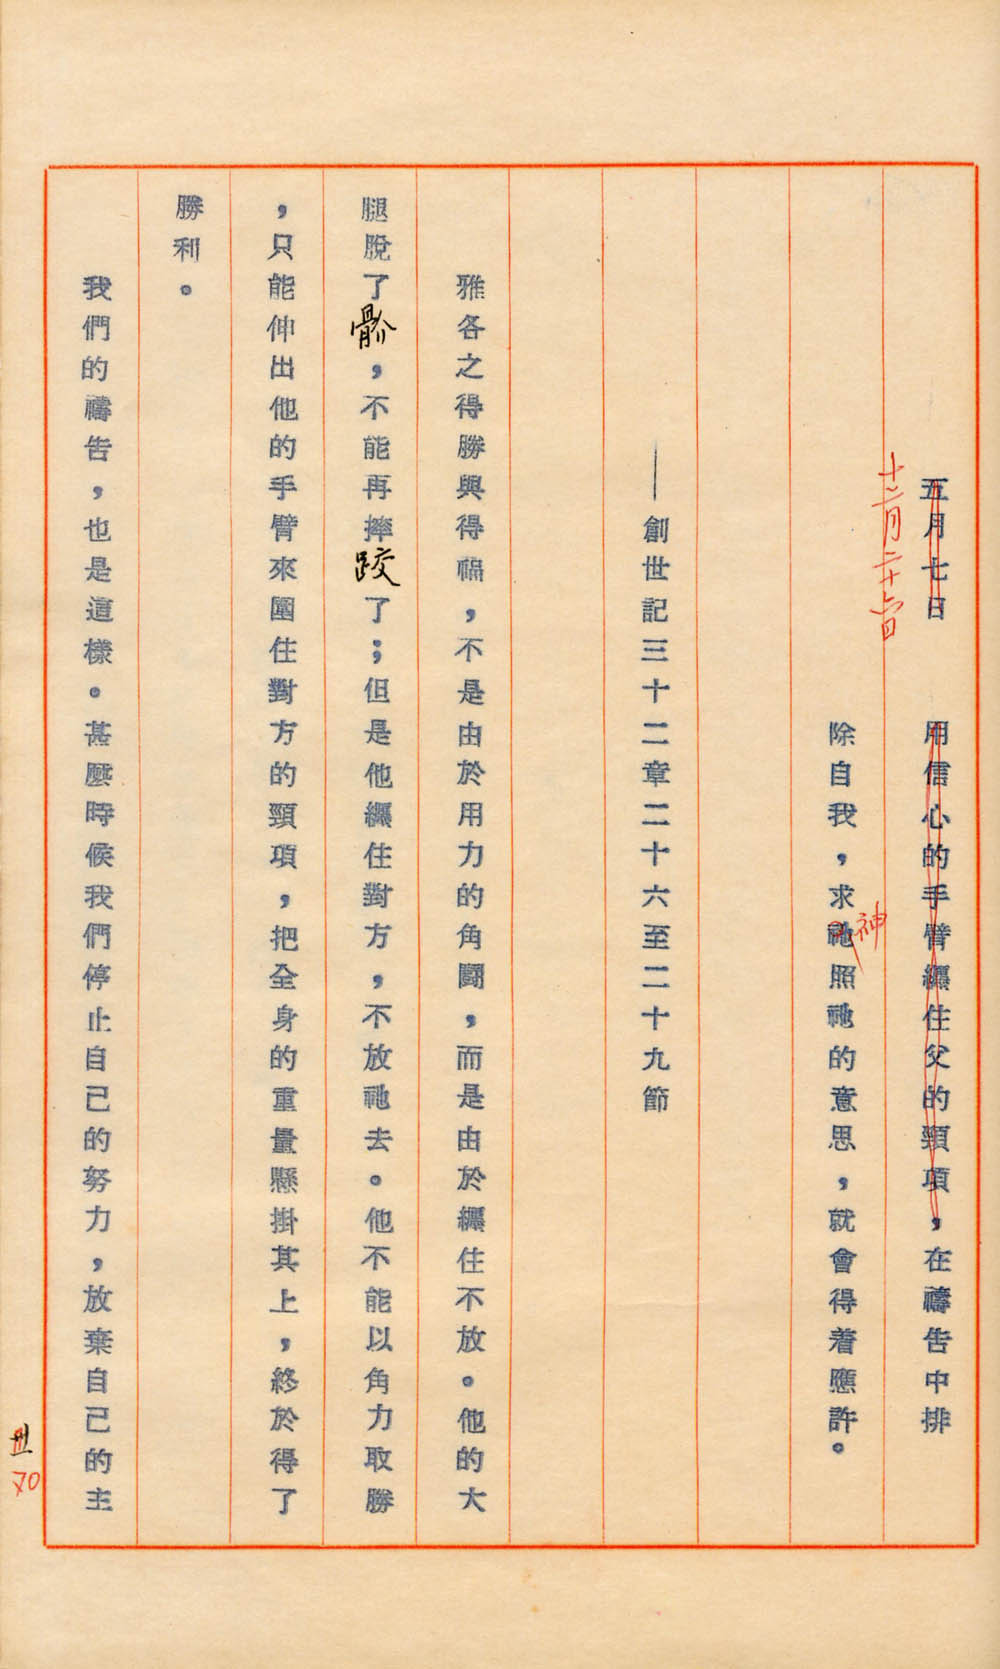 五月七日　用信心的手臂纏住父的頸項，在禱告中排
十二月二十六日
除自我，求祂照祂的意思，就會得着應許。
神
——創世記三十二章二十六至二十九節
雅各之得勝與得福，不是由於用力的角鬪，而是由於纏住不放。他的大
腿脫了骱，不能再摔跤了；但是他纏住對方，不放祂去。他不能以角力取勝
，只能伸出他的手臂來圍住對方的頸項，把全身的重量懸掛其上，終於得了
勝利。
我們的禱告，也是這樣。甚麼時候我們停止自己的努力，放棄自己的主
70